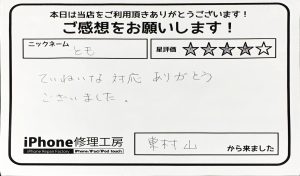 本日は当店をご利用頂きありがとうございます！
ご感想をお願いします！
ニックネーム
とも
星評価 ★★★★★
ていねいな対応ありがとう
ございました。
iPhone修理工房
iPhone Repair Factory iPhone/iPad/iPod touch
東村山 から来ました